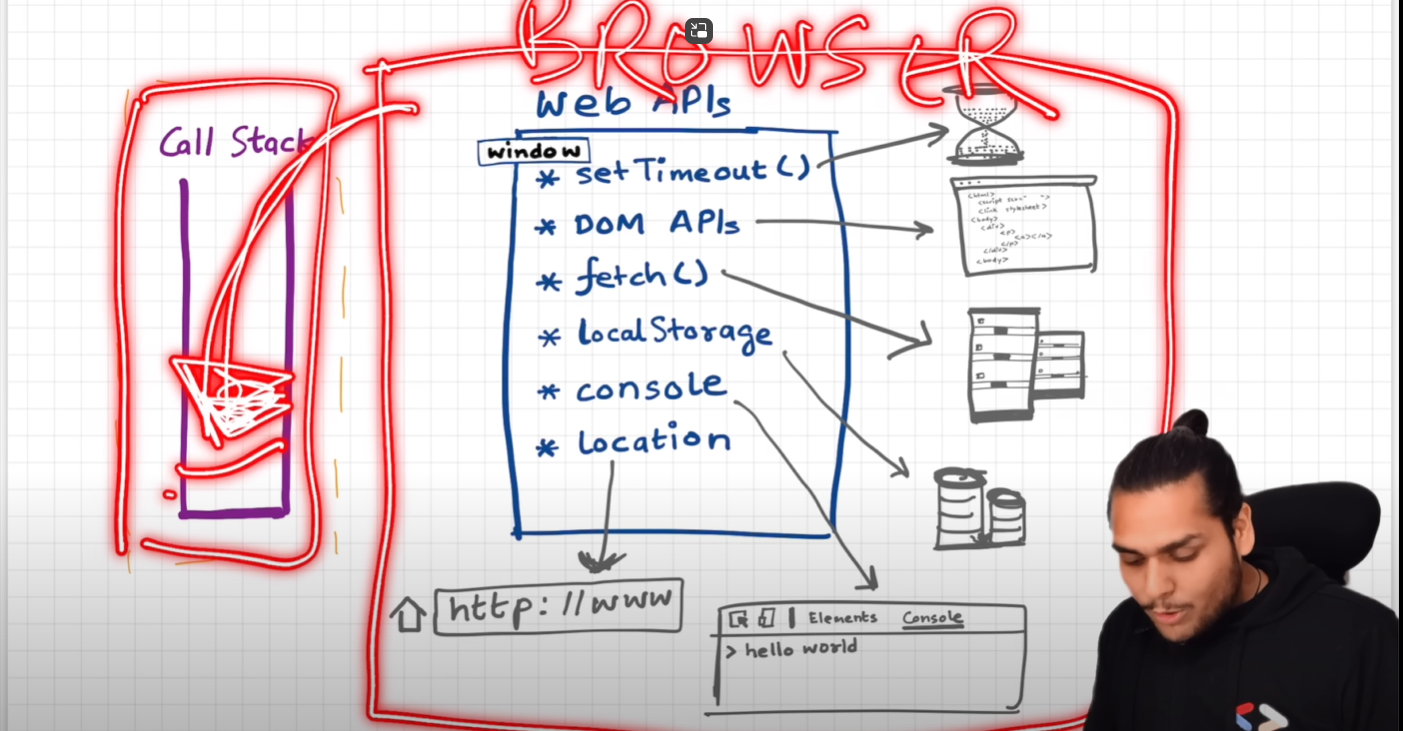 BROWSER
Call Stack
Web APIs
window
* setTimeout()
* DOM APIs
* fetch()
* localStorage
* console
* location
<html>
<body>
<div>
<p>
<a></a>
</p>
</div>
<body>
http://www
Elements Console
> hello world